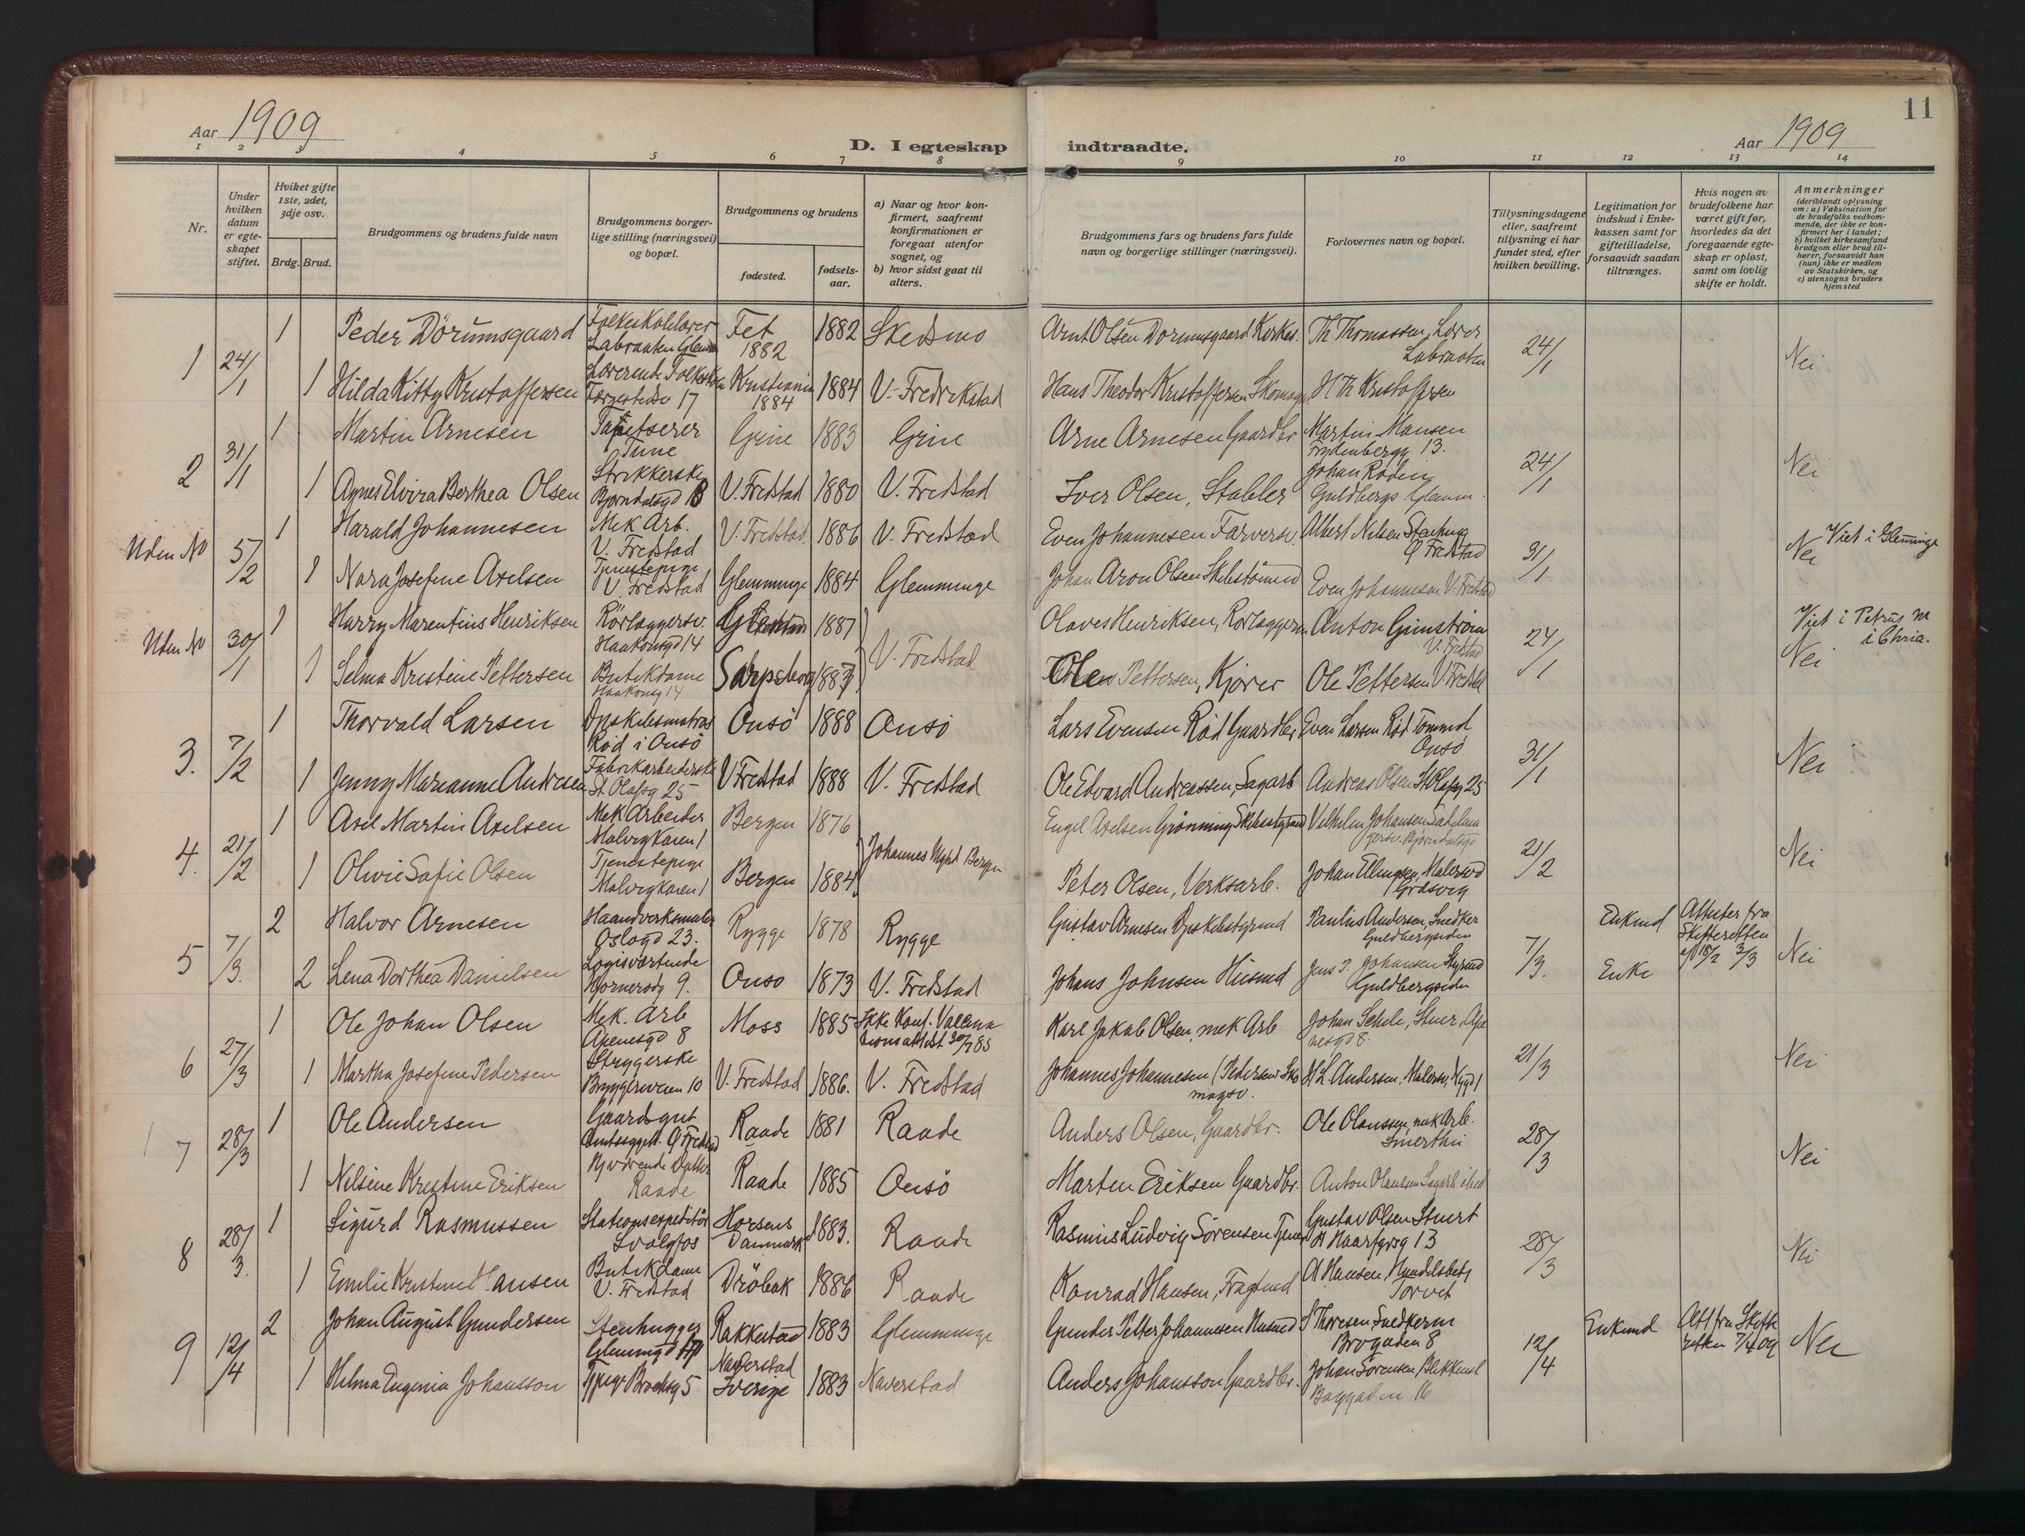 Aar 1909
D. I egteskap indtraadte.
Aar 1909
11
1 2 3 4 5 6 7 8 9 10 11 12 13 14
Nr.
Under hvilken datum er egteskapet stiftet.
Hviket gifte 1ste, 2det, 3dje osv.
Brdg. Brud.
Brudgommens og brudens fulde navn
Brudgommens borgerlige stilling (næringsvei) og bopæl.
Brudgommens og brudens
fødested.
fødselsaar.
a) Naar og hvor konfirmert, saafremt konfirmationen er foregaat utenfor sognet, og
b) hvor sidst gaat til alters.
Brudgommens fars og brudens fars fulde navn og borgerlige stillinger (næringsvei).
Forlovernes navn og bopæl.
Tillysningsdagene eller, saafremt tillysning ei har fundet sted, efter hvilken bevilling.
Legitimation for indskud i Enkekassen samt for giftetilladelse, forsaavidt saadan tiltrænges.
Hvis nogen av brudefolkene har været gift før, hvorledes da det foregaaende egteskap er opløst, samt om lovlig skifte er holdt.
Anmerkninger
(deriblandt oplysning om: a) Vaksination for de brudefolks vedkommende, der ikke er konfirmert her i landet; b) hvilket kirkesamfund brudgom eller brud tilhører, forsaavidt han (hun) ikke er medlem av Statskirken, og c) utensogns bruders hjemsted
1 24/1 1 Peder Dörumsgaard Folkeskolelærer Labraaten Glem Fet 1882 1882 Skedsmo Arnt Olsen Dorumsgaard Kirkes. Th Thomassen, Lærer Labraaten 24/1 Nei
1 Hilda Kitty Kristoffersen Lærerinde Folkesk 17 Kristiania 1884 1884 V. Fredrikstad Hans Theodor Kristoffersen Skomag H Th Kristoffersen
2 31/1 1 Martin Arnesen Tapetserer Tune Grue 1883 Grue Arne Arnesen Gaardbr Martin Hansen Frydenbergg 13. 24/1 Nei
1 Agnes Elvira Berthea Olsen Strikkerske Bjorndalsgd 18 V. Fredstad 1880 V. Fredstad Iver Olsen, Stabler Johan Roden Guldbergs. Glemm.
Uden No 5/2 1 Harald Johannesen Mek Arb. V. Fredstad V. Fredstad. 1886 V. Fredstad Even Johannesen Farverv. Albert Nilsen Stenhug Ø Fredstad 31/1 Nei Viet i Glemminge
1 Nora Josefine Axelsen Tjenestepige V. Fredstad Glemminge 1884 Glemminge Johan Aron Olsen Skibstömmd Even Johannesen V. Fredstad
Uden No 30/1 1 Harry Marentius Henriksen Rörlæggersv. Haakonsgd 14 1887 V. Fredstad Olaves Henriksen, Rorlægger Anton Grimström V. Fredstad 24/1 Nei Viet i Petrus M i Chria.
1 Selma Kristine Pettersen Butikdame Haakonsg 14 Sarpsborg 1887 Ole Pettersen, Kjører Ole Pettersen V. Fredstad
3. 7/2 1 Thorvald Larsen Dpskibsmatros Rød i Onsö Onsö 1888 Onsö Lars Evensen Rød Gaardbr Even Larsen Rød Tømmd Onsö 31/1 Nei
1 Jenny Marianne Andresen Fabrikarbeiderske St Olafsg 25 V Fredstad 1888 V. Fredstad Ole Edvard Andreassen, Sagarb Andreas Olsen St Olafsg 25
4. 21/2 1 Axel Martin Axelsen Mek Arbeider Malvigkaren 1 Bergen 1876 Johannes Mght Bergen Engel Axelsen Grönning Skibsstyrmd Vilhelm Johansen Sadelma Bjorndalsgd 21/2 Nei
1 Olivie Sofie Olsen Tjenestepige Malvigkaren 1 Bergen 1884. Peter Olsen, Verksarb. Johan Ellingsen, Malersvd Grösvig
5 7/3. 2 Halvor Arnesen Haandverksmaler Oslogd 23. Rygge 1878 Rygge Gustav Arnesen Dpskibstyrmd Paulius Andersen, Snedker Guldbergsiden 7/3. Enkmd Attester fra Skifteretten af 18/2 3/3 Nei
2 Lena Dorthea Danielsen Logisvertinde Hjornerødg 9. Onso 1873 V. Fredstad Johans Johnsen Husmd Jens P. Johansen Styrmd Guldbergsiden Enke
6 27/3 1 Ole Johan Olsen Mek. Arb Apenesgd 8 Moss 1885 Ikke Konf. Vaccinationsattest 30/7 85 Karl Jakob Olsen, mek Arb Johan Schele, Stuer, Apenesgd 8. 21/3 Nei
1 Martha Josefine Pedersen Strygerske Bryggeriveien 10 V. Fredstad 1886. V. Fredstad Johannes Johannesen (Pedersen) Skomagsv. H L Andersen, Malersv, Nygd 1
7 28/3 1 Ole Andersen Gaardsgut Ø Fredstad Raade 1881 Raade Anders Olsen, Gaardbr. Ole Olaussen, mek Arb. Smerthu 28/3 Nei
1 Nilsine Kristine Eriksen Hjvörende Datter Raade Raade 1885 Onsö Marten Eriksen Gaardbr. Anton Olaussen Sagarb
8 28/3. 1 Sigurd Rasmussen Stationsexpeditör Svalgfos Horsens Danmark 1883. Raade Rasmus Ludvig Sörensen Tjener Gustav Olsen Stuert H Haarfgrsg 13 28/3 Nei
1 Emilie Kristine Hansen Butikdame V. Fredstad Dröbak 1886 Raade Konrad Hansen, Fragtmd A Hansen, Handelsbetj Torvet
9 12/4 2 Johan August Gundersen Stenhugger Glemmgd Rakkestad 1883 Glemminge Gunder Petter Johannesen Husmd S Thoresen Snedkerm Brogaden 8 12/4 Enkmd Att fra Skifteretten 7/4 09 Nei
1 Hilma Eugenia Johansson Tjpige Brodsg 5 Naverstad Sverige 1883 Naverstad Anders Johansson Gaardbr. Johan Sörensen, Blikkensl Baggaden 16